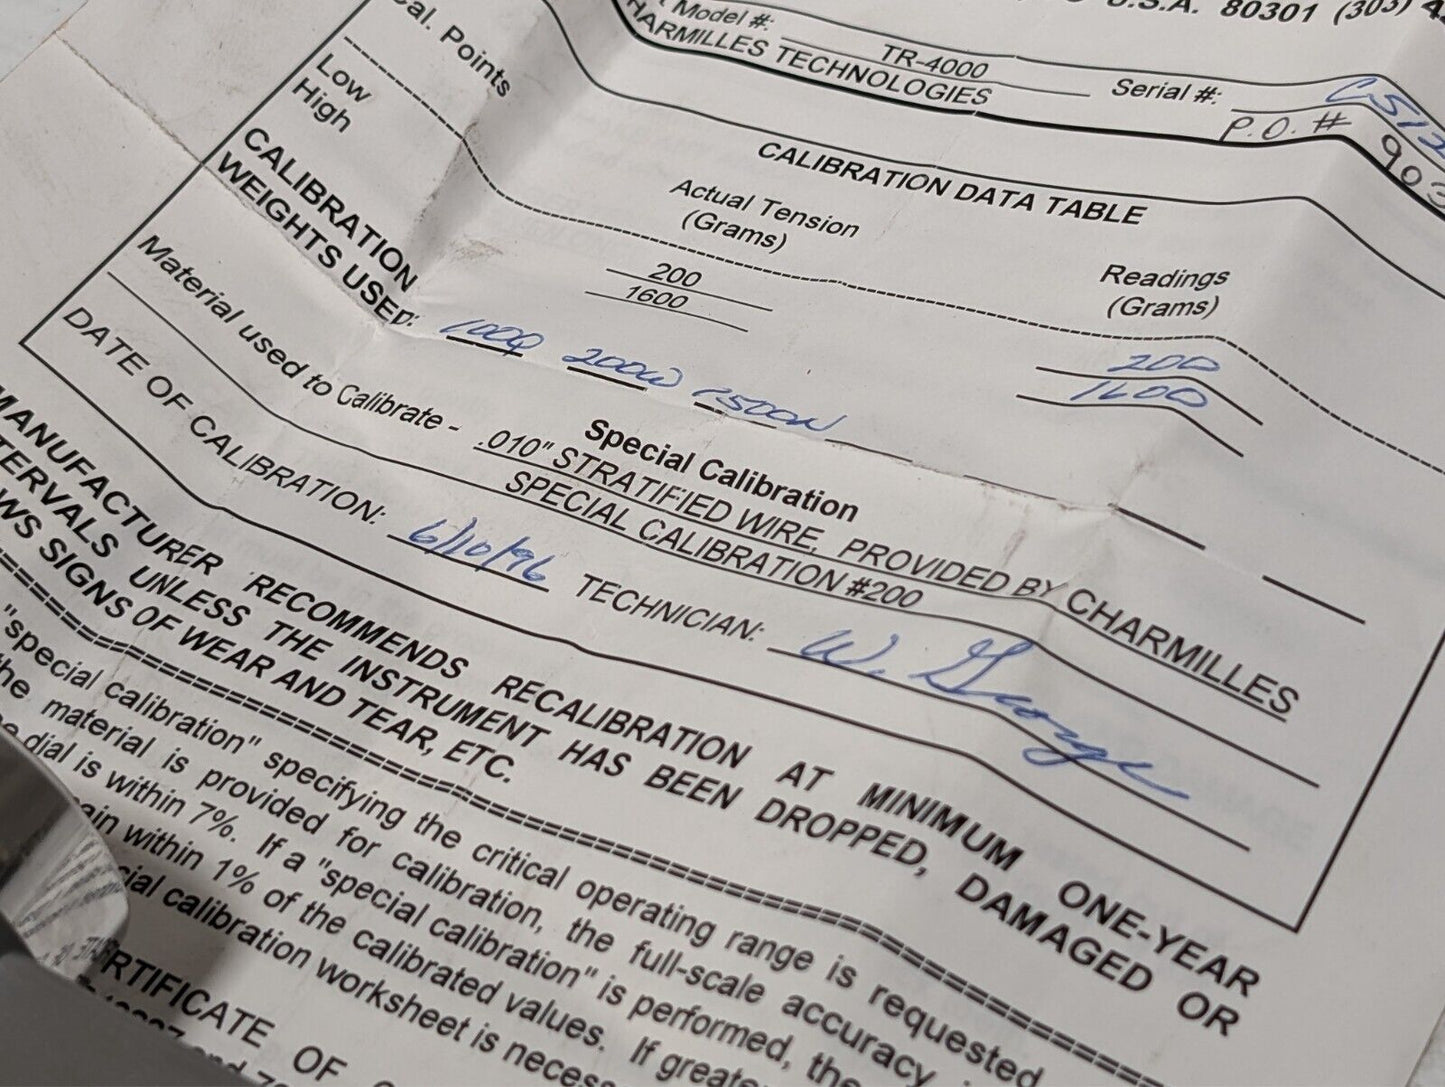 U.S.A. 80301 (303)
Model #: TR-4000 Serial #:
CHARMILLES TECHNOLOGIES P.O. # 903
CALIBRATION DATA TABLE
Cal. Points Actual Tension Readings
(Grams) (Grams)
Low 200 200
High 1600 1600
CALIBRATION
WEIGHTS USED:
Special Calibration
Material used to Calibrate - .010" STRATIFIED WIRE, PROVIDED BY CHARMILLES
SPECIAL CALIBRATION #200
DATE OF CALIBRATION: 6/10/96 TECHNICIAN: W. George
MANUFACTURER RECOMMENDS RECALIBRATION AT MINIMUM ONE-YEAR
INTERVALS UNLESS THE INSTRUMENT HAS BEEN DROPPED, DAMAGED OR
SHOWS SIGNS OF WEAR AND TEAR, ETC.
"special calibration" specifying the critical operating range is requested
the material is provided for calibration, the full-scale accuracy
dial is within 7%. If a "special calibration" is performed, the
within 1% of the calibrated values. If
calibration worksheet is
CERTIFICATE OF